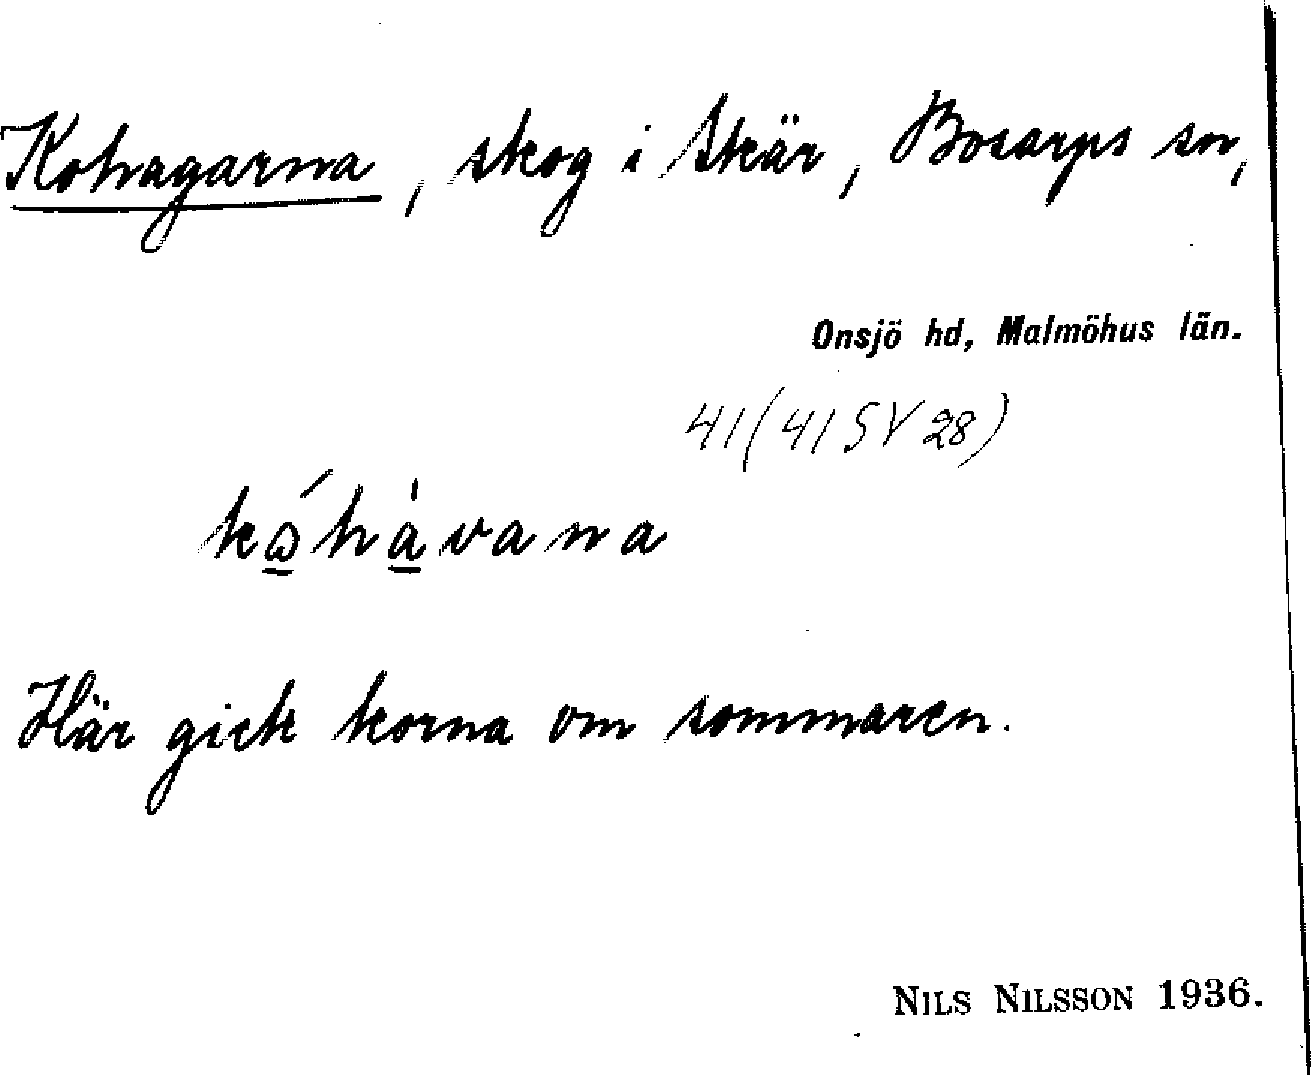 Kohagarna, skog i Skär, Bosarps sn,
Onsjö hd, Malmöhus län.
41(41 SV 28)
kóhàvana
Här gick korna om sommaren.
NILS NILSSON 1936.